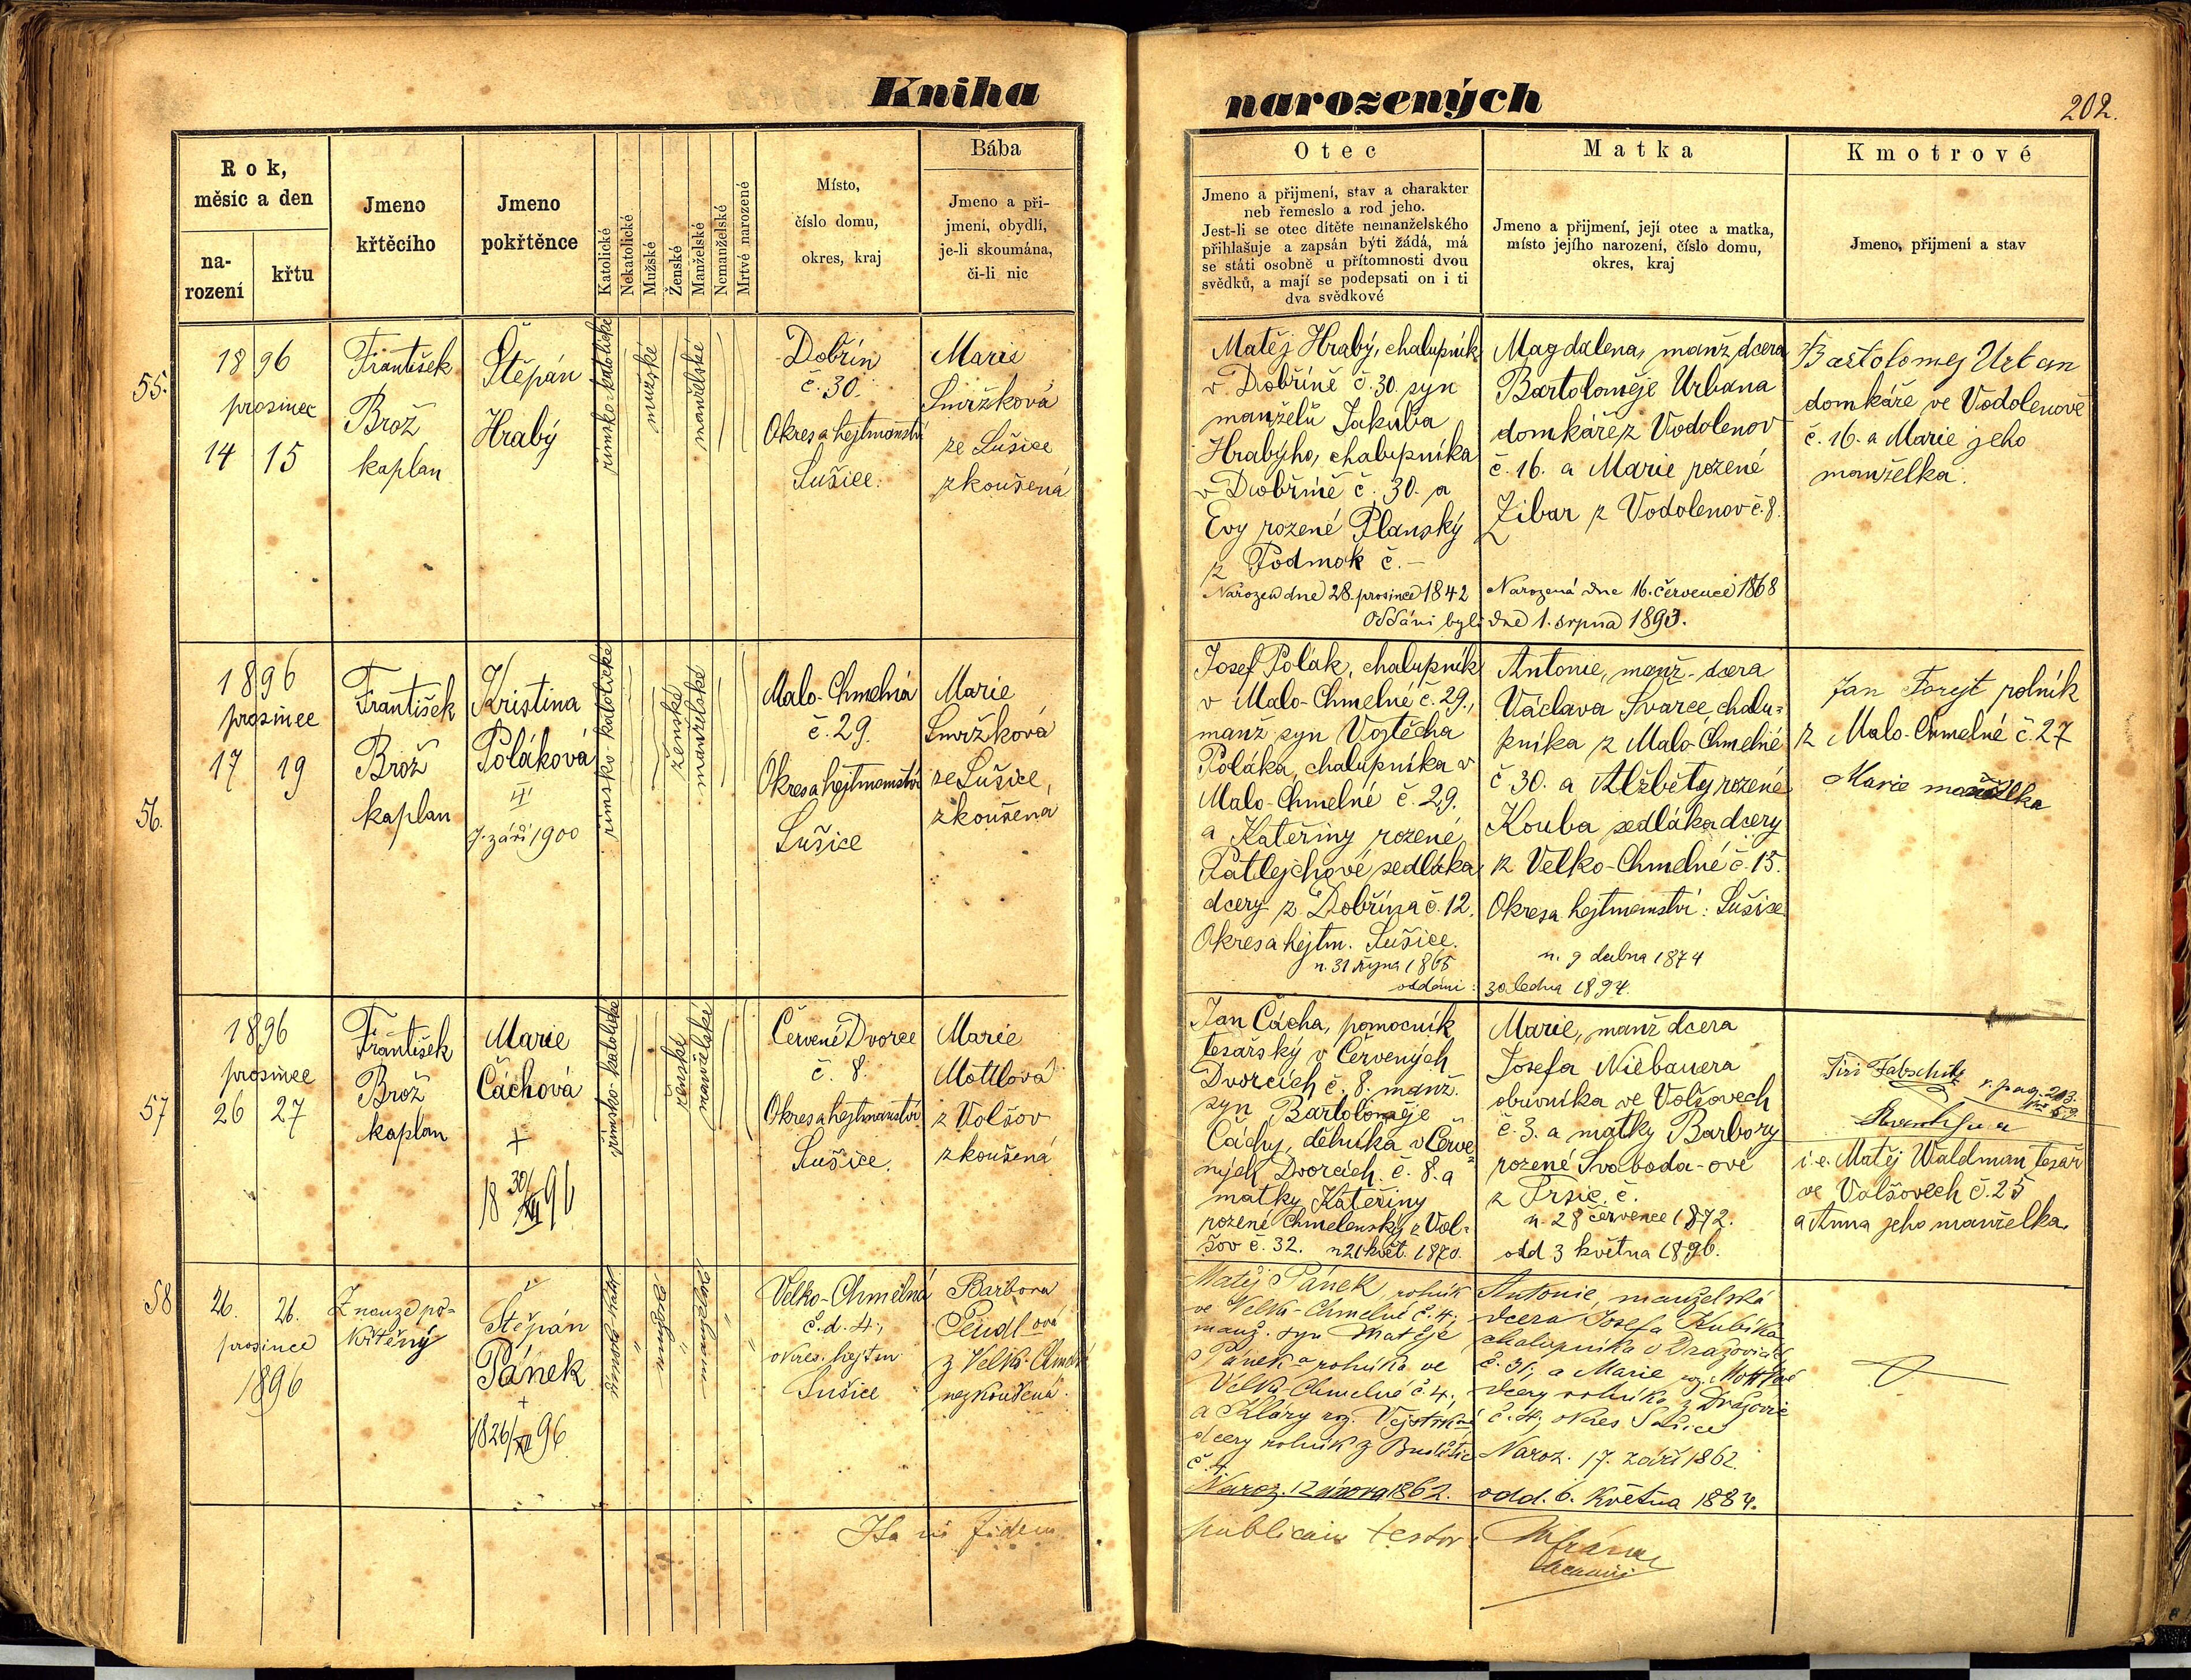 Kniha
narozených
202.
Rok,
měsíc a den
na-
rození
křtu
Jmeno
křtěcího
Jmeno
pokřtěnce
Katolické
Nekatolické
Mužské
Ženské
Manželské
Nemanželské
Mrtvé narozené
Místo,
číslo domu,
okres, kraj
Bába
Jmeno a při-
jmení, obydlí,
je-li skoumána,
či-li nic
Otec
Jmeno a přijmení, stav a charakter
neb řemeslo a rod jeho.
Jest-li se otec dítěte nemanželského
přihlašuje a zapsán býti žádá, má
se státi osobně u přítomnosti dvou
svědků, a mají se podepsati on i ti
dva svědkové
Matka
Jmeno a přijmení, její otec a matka,
místo jejího narození, číslo domu,
okres, kraj
Kmotrové
Jmeno, přijmení a stav
55.
1896
prosinec
14 15
František
Brož
kaplan
Štěpán
Hrabý
římsko-katolické
mužské
manželské
Dobřín
č. 30.
Okres a hejtmanství
Sušice.
Marie
Smržková
ze Sušice
zkoušená
Matěj Hrabý, chalupník
v Dobříně č. 30. syn
manželů Jakuba
Hrabýho, chalupníka
v Dobříně č. 30. a
Evy rozené Planský
z Podmok č. –
Narozen dne 28. prosince 1842
Magdalena, manž. dcera
Bartoloměje Urbana
domkáře z Vodolenov
č. 16. a Marie rozené
Zibar z Vodolenov č. 8.
Narozená dne 16. července 1868
Oddáni byli dne 1. srpna 1893.
Bartolomej Urban
domkáře ve Vodolenově
č. 16. a Marie jeho
manželka.
56.
1896
prosinec
17 19
František
Brož
kaplan
Kristina
Poláková
7. září 1900
římsko-katolické
ženské
manželské
Malo-Chmelná
č. 29.
Okres a hejtmanství
Sušice
Marie
Smržková
ze Sušice,
zkoušená
Josef Polák, chalupník
v Malo-Chmelné č. 29.,
manž syn Vojtěcha
Poláka, chalupníka v
Malo-Chmelné č. 29.
a Kateřiny rozené
Patlejchové sedláka
dcery z Dobřína č. 12.
Okres a hejtm. Sušice.
n. 31 října 1865
Antonie, manž. dcera
Václava Švarce, chalu=
pníka z Malo-Chmelné
č 30. a Alžběty rozené
Kouba sedláka dcery
z Velko-Chmelné č. 15.
Okres a hejtmanství: Sušice
n. 9 dubna 1874
oddáni: 30 ledna 1894.
Jan Forejt rolník
z Malo-Chmelné č. 27
Marie manželka
57
1896
prosinec
26 27
František
Brož
kaplan
Marie
Čáchová
+
18 30/XII 96
římsko-katolické
ženské
manželské
Červené Dvorce
č. 8.
Okres a hejtmanství
Sušice.
Marie
Mottlová
z Volšov
zkoušená
Jan Čácha, pomocník
tesařský v Červených
Dvorcích č. 8. manž.
syn Bartoloměje
Čáchy, dělníka v Červe=
ných Dvorcích č. 8. a
matky Kateřiny
rozené Chmelenský z Vol=
šov č. 32. n 21 květ. 1870.
Marie, manž dcera
Josefa Niebauera
obuvníka ve Volšovech
č. 3. a matky Barbory
rozené Svoboda-ové
z Tršic č.
n. 28 července 1872.
odd 3 května 1896.
v. pag. 203.
i. e. Matěj Waldman, tesař
ve Volšovech č. 25
a Anna jeho manželka.
58
26. 26.
prosince
1896
Z nouze po-
křtěný
Štěpán
Pánek
+
18 26/XII 96
Velko-Chmelná
č. d. 4;
okres. hejtm
Sušice
Barbora
Peudlová
z Velko-Chmelné
nezkoušená.
Matěj Pánek, rolník
ve Velko-Chmelné č. 4;
manž. syn Matěje
Pánek-a rolníka ve
Velko-Chmelné č. 4.
a Kláry roz.
dcery rolník z Budětic
č. 4.
Naroz. 12 února 1862.
Antonie, manželská
dcera Josefa Kubíka
chalupníka v Dražovicích
č. 31, a Marie roz. Mottlové
dcery rolníka z Dražovic
č. 4, okres Sušice
Naroz. 17. září 1862.
odd. 6. května 1884.
fidem
publicam testor